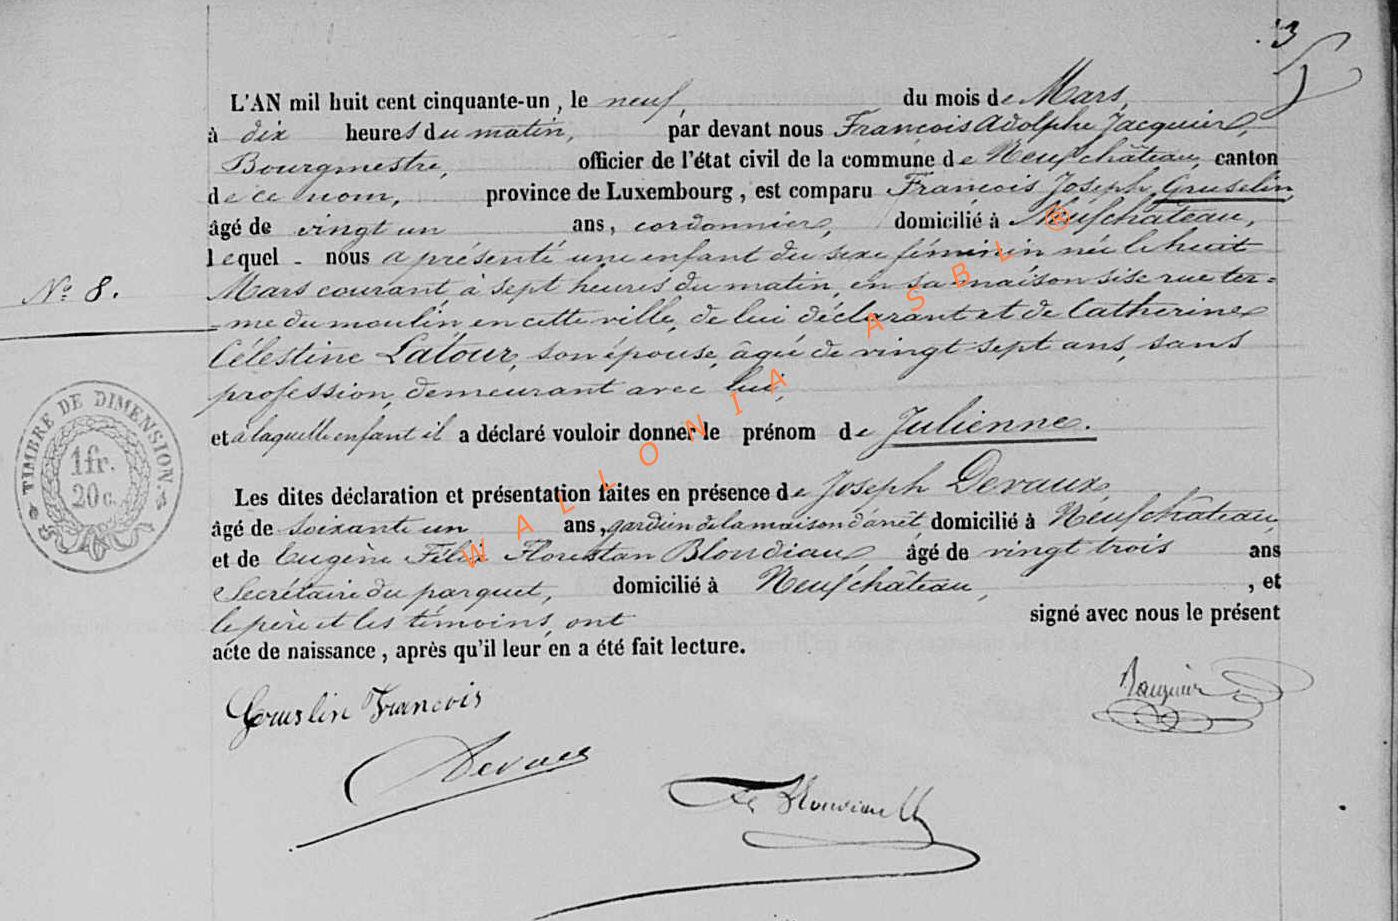 3
L'AN mil huit cent cinquante-un, le neuf, du mois de Mars,
à dix heures du matin, par devant nous François Adolphe Jacquier,
Bourgmestre, officier de l'état civil de la commune de Neufchâteau, canton
de ce nom, province de Luxembourg, est comparu François Joseph Gruselin
âgé de vingt un ans, cordonnier, domicilié à Neufchâteau,
lequel - nous a présenté une enfant du sexe féminin née le huit
Mars courant à sept heures du matin, en sa maison sise rue ter=
N° 8.
=me du moulin, en cette ville, de lui déclarant et de Catherine
Célestine Latour, son épouse, âgée de vingt sept ans, sans
profession, demeurant avec lui,
et à laquelle enfant il a déclaré vouloir donner le prénom de Julienne.
TIMBRE DE DIMENSION
1fr.
20c.
Les dites déclaration et présentation faites en présence de Joseph Devaux,
âgé de soixante un ans, gardien de la maison d'arrêt domicilié à Neufchateau
et de Eugène Félix Florestan Blondiau âgé de vingt trois ans
Secrétaire du parquet, domicilié à Neufchâteau, , et
le père et les témoins, ont signé avec nous le présent
acte de naissance, après qu'il leur en a été fait lecture.
Gruslin François
Jacquier
Devaux
WALLONIA ASBL ®